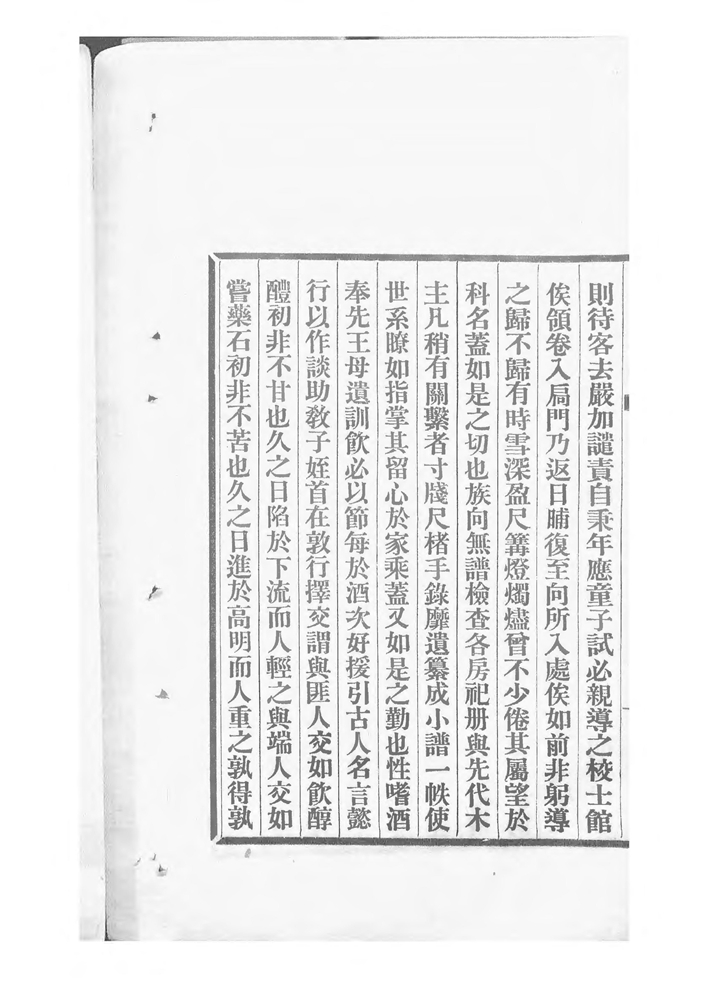 則待客去嚴加譴責自秉年應童子試必親導之棱士館
俟領卷入扃門乃返日晡復至向所入處俟如前非躬導
之歸不歸有時雪深盈尺篝燈燭燼曾不少倦其屬望於
科名蓋如是之切也族向無譜檢查各房祀册與先代木
主凡稍有關繫者寸牋尺楮手錄靡遺纂成小譜一帙使
世系瞭如指掌其留心於家乘蓋又如是之勤也性嗜酒
奉先王母遺訓飲必以節每於酒次好援引古人名言懿
行以作談助教子姪首在敦行擇交謂與匪人交如飲醇
醴初非不甘也久之日陷於下流而人輕之與端人交如
嘗藥石初非不苦也久之日進於高明而人重之孰得孰